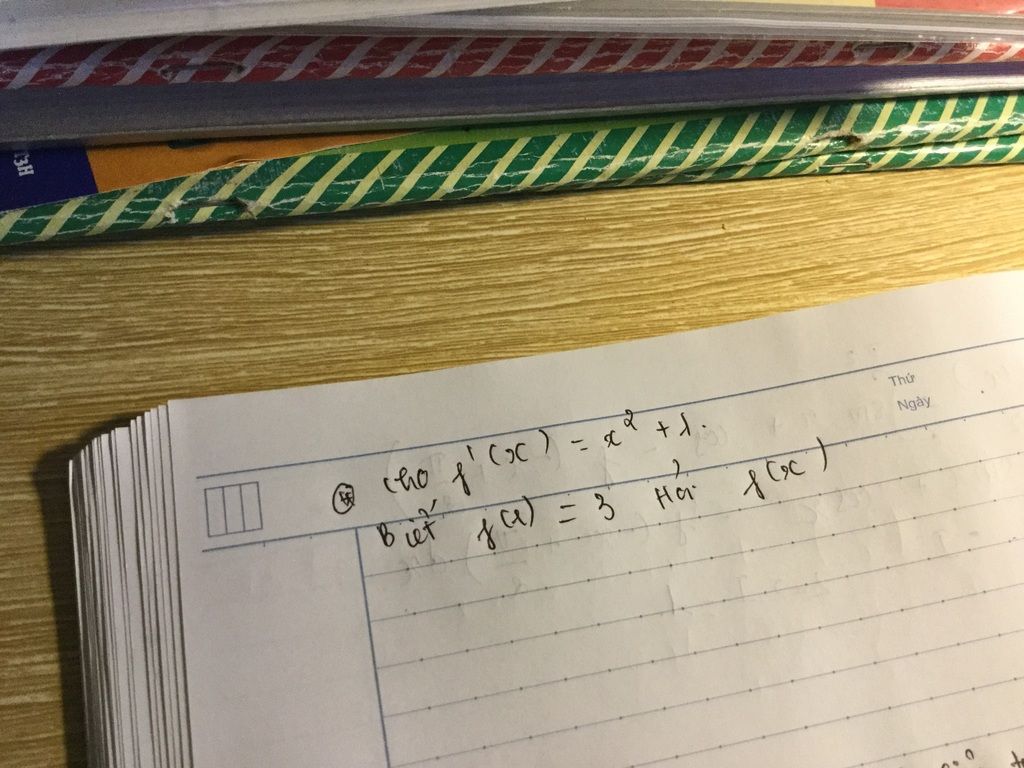 Thứ
Ngày
Cho f'(x) = x² + 1.
Biết f(1) = 3 Hỏi f(x)